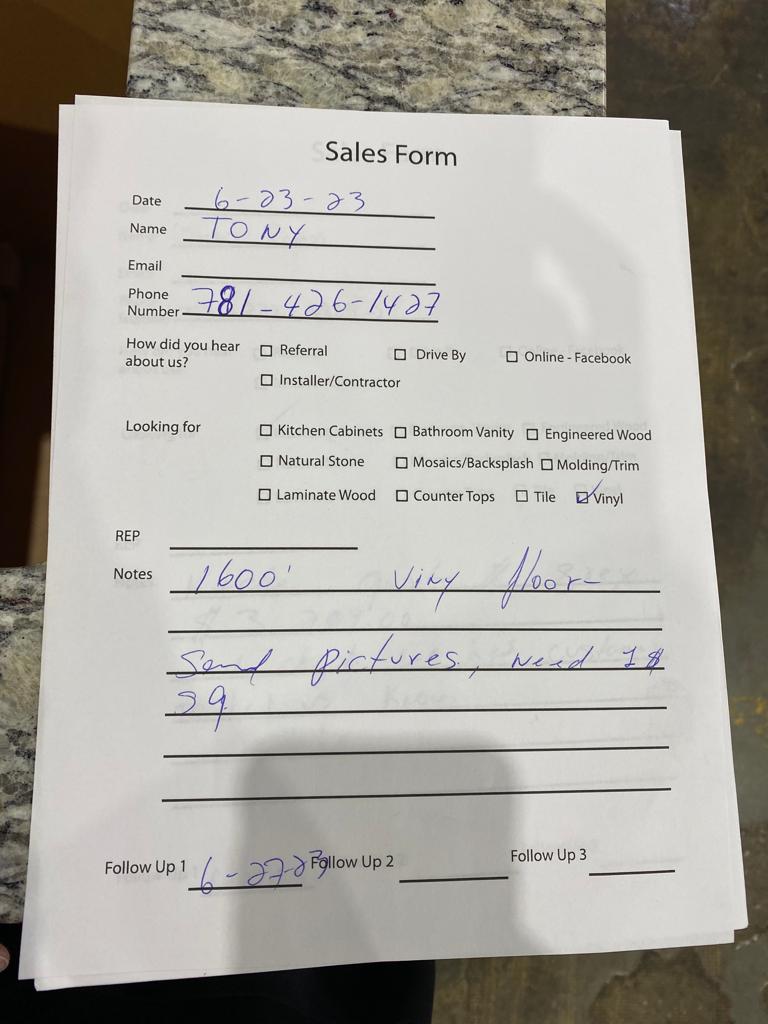 Sales Form
Date 6-23-23
Name TONY
Email
Phone Number 781-426-1427
How did you hear about us? ☐ Referral ☐ Drive By ☐ Online - Facebook
☐ Installer/Contractor
Looking for ☐ Kitchen Cabinets ☐ Bathroom Vanity ☐ Engineered Wood
☐ Natural Stone ☐ Mosaics/Backsplash ☐ Molding/Trim
☐ Laminate Wood ☐ Counter Tops ☐ Tile ☑ Vinyl
REP
Notes 1600' Viny floor
Send pictures, Need 1$
Follow Up 1 6-27-23 Follow Up 2 Follow Up 3